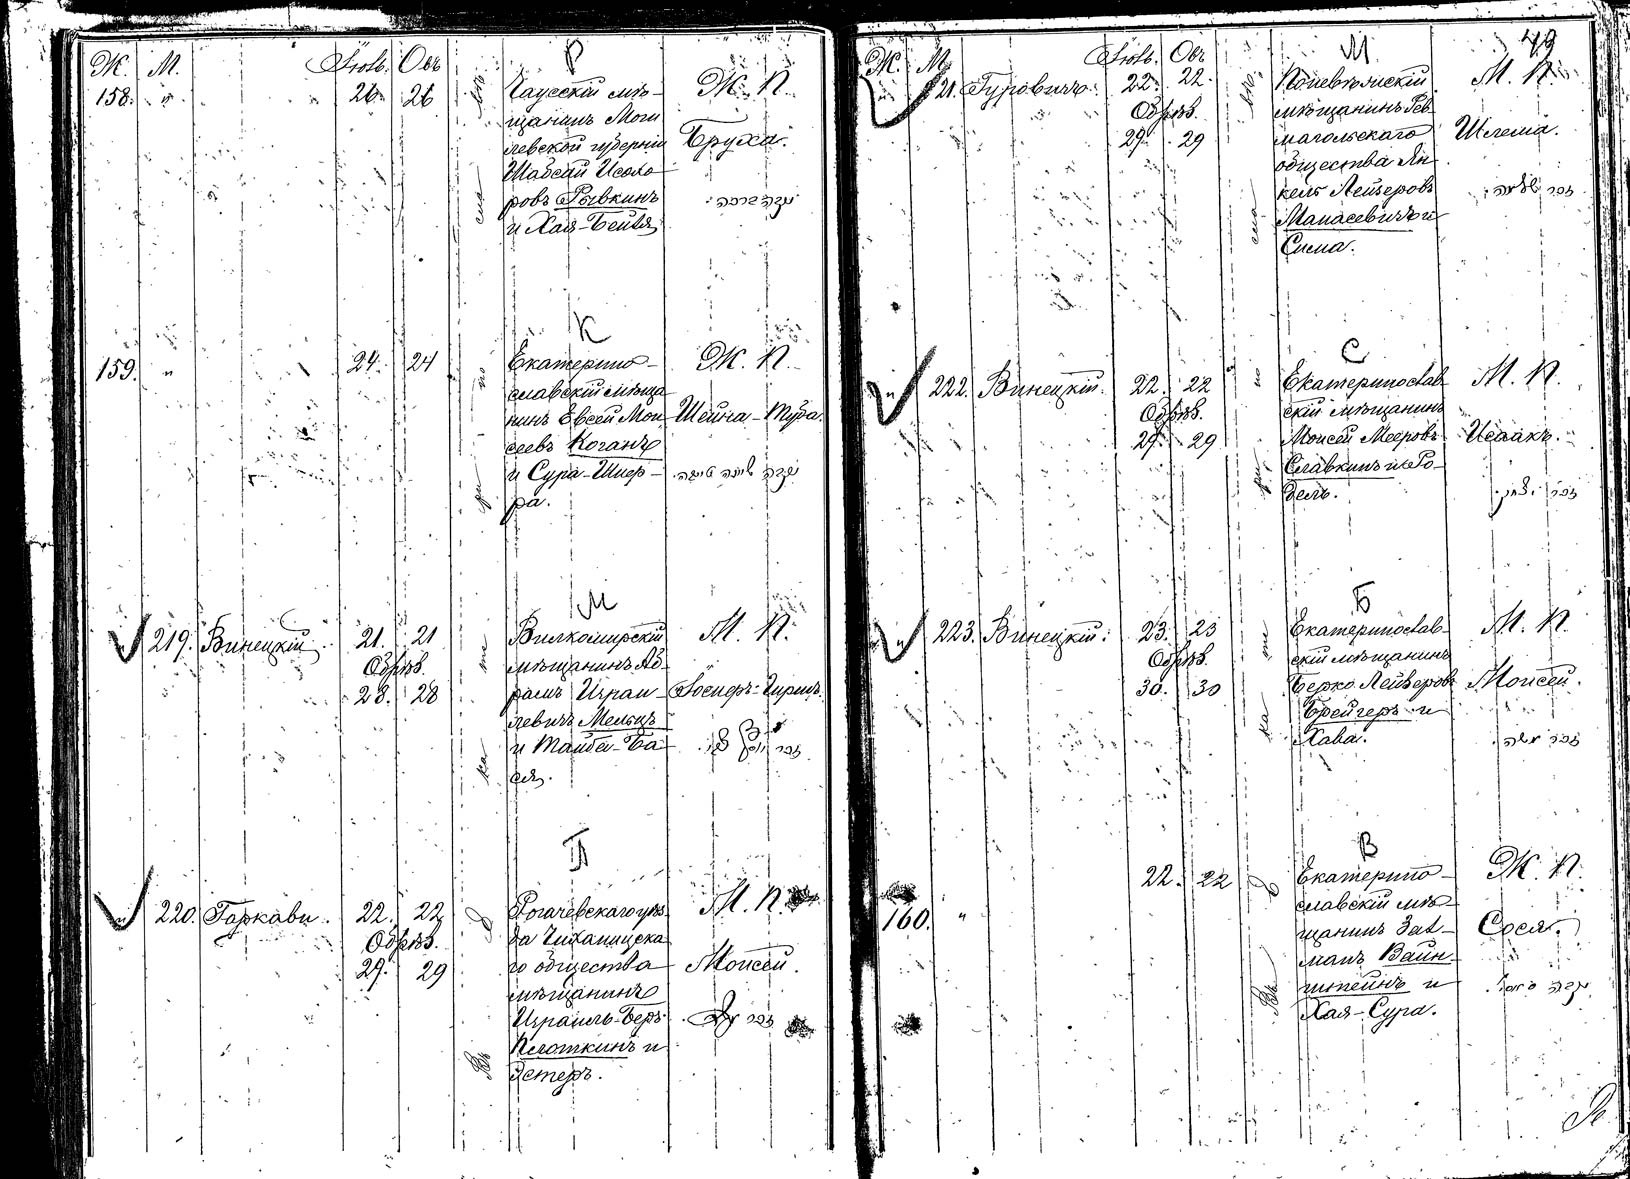 Ж. М. Іюль. Овъ
Р
158. " 26. 26
Чаусскій мѣ-
щанинъ Моги
левской губерніи
Шабсай Исахо
ровъ Рывкинъ
и Хая-Бейля
Ж. П.
Бруха.
נקבה ברכה.
К
159. " 24. 24
Екатерино-
славскій мѣща
нинъ Евсей Мои
сеевъ Коганъ
и Сура-Шпер-
ра.
Ж. П.
Шейна-Туба.
נקבה שיינה טויבה.
М
219. Винецкій. 21. 21
Обрѣз.
28. 28
Вилкомирскій
мѣщанинъ Аб-
рамъ Израи-
левичъ Мельцъ
и Тайба-Ба-
ся.
М. П.
Іосперъ-Гиршъ.
זכר
П
220. Гаркави. 22. 22
Обрѣз.
29. 29
Рогачевскаго уѣз-
да Чиханицска
го общества
мѣщанинъ
Израиль-Беръ
Плоткинъ и
Эстеръ.
М. П.
Моисей.
זכר
49
Ж. М. Іюль. Овъ
М
" 21. Гуровичъ. 22. 22.
Обрѣз.
29. 29
Поневѣжскій
мѣщанинъ
общества Ян
кель Лейзеровъ
Манасевичъ и
Сима.
М. П.
Шлема.
זכר שלמה.
С
" 222. Винецкій. 22. 22
Обрѣз.
29. 29
Екатеринослав
скій мѣщанинъ
Моисей Мееровъ
Славкинъ и Го-
дель.
М. П.
Исаакъ.
זכר יצחק.
Б
" 223. Винецкій. 23. 23
Обрѣз.
30. 30
Екатеринослав-
скій мѣщанинъ
Берко Лейзеровъ
Брейгеръ и
Хава.
М. П.
Моисей.
זכר משה.
В
160. " 22. 22
Екатерино-
славскій мѣ-
щанинъ Зал-
манъ Вайн-
штейнъ и
Хая-Сура.
Ж. П.
Сося.
נקבה סאסל.